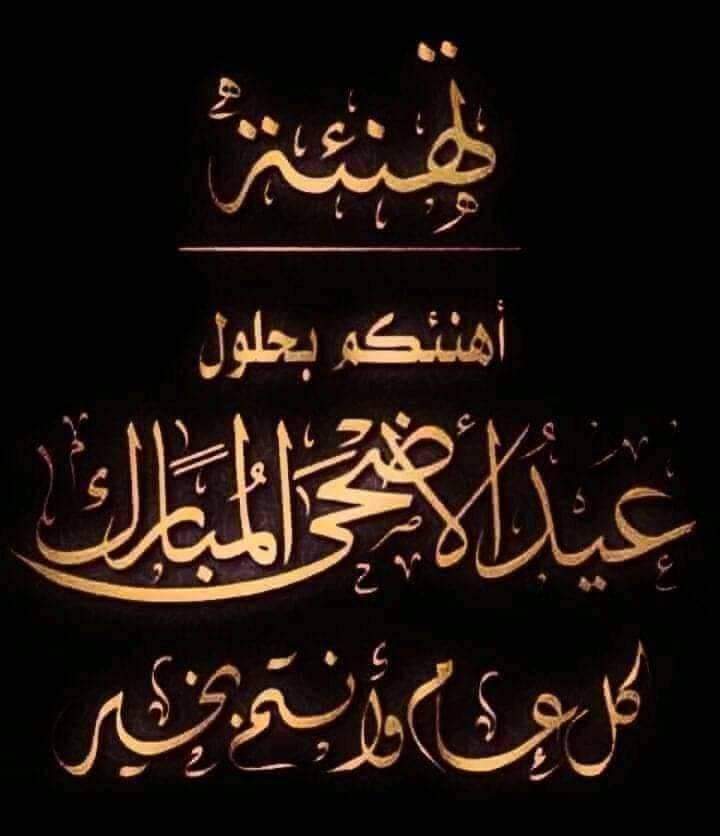 تهنئة
أهنئكم بحلول
عيد الأضحى المبارك
كل عام وأنتم بخير